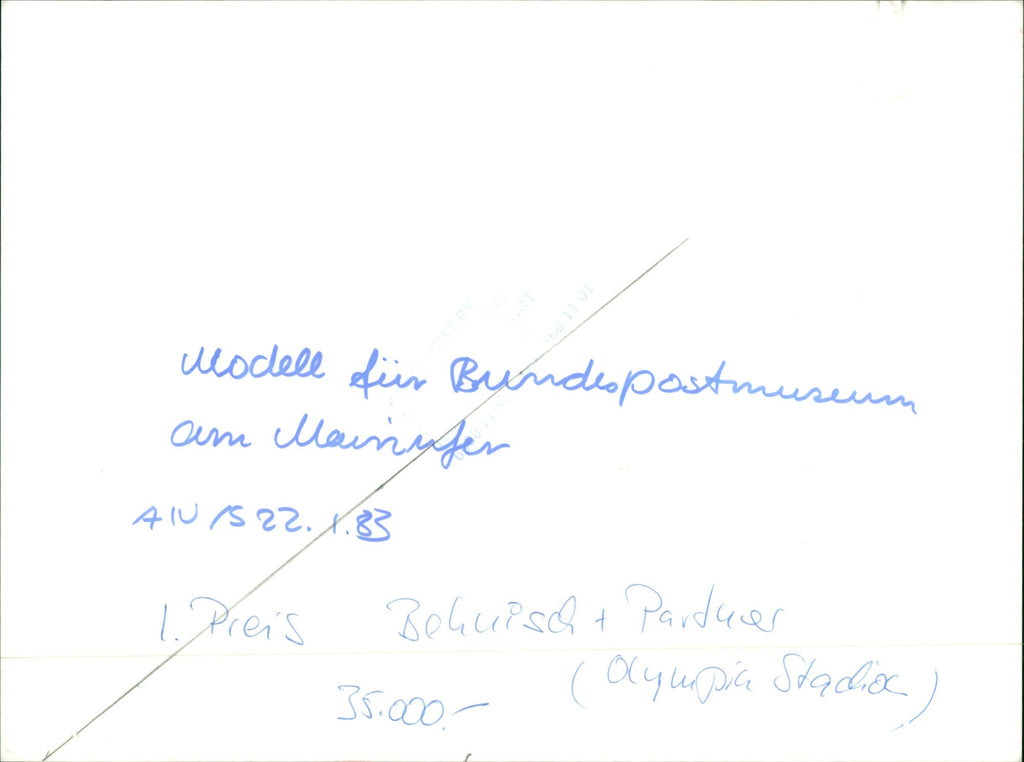 Modell für Bundespostmuseum
am Mainufer
22.1.83
1. Preis Behnisch + Partner
(Olympia Stadion)
35.000.-